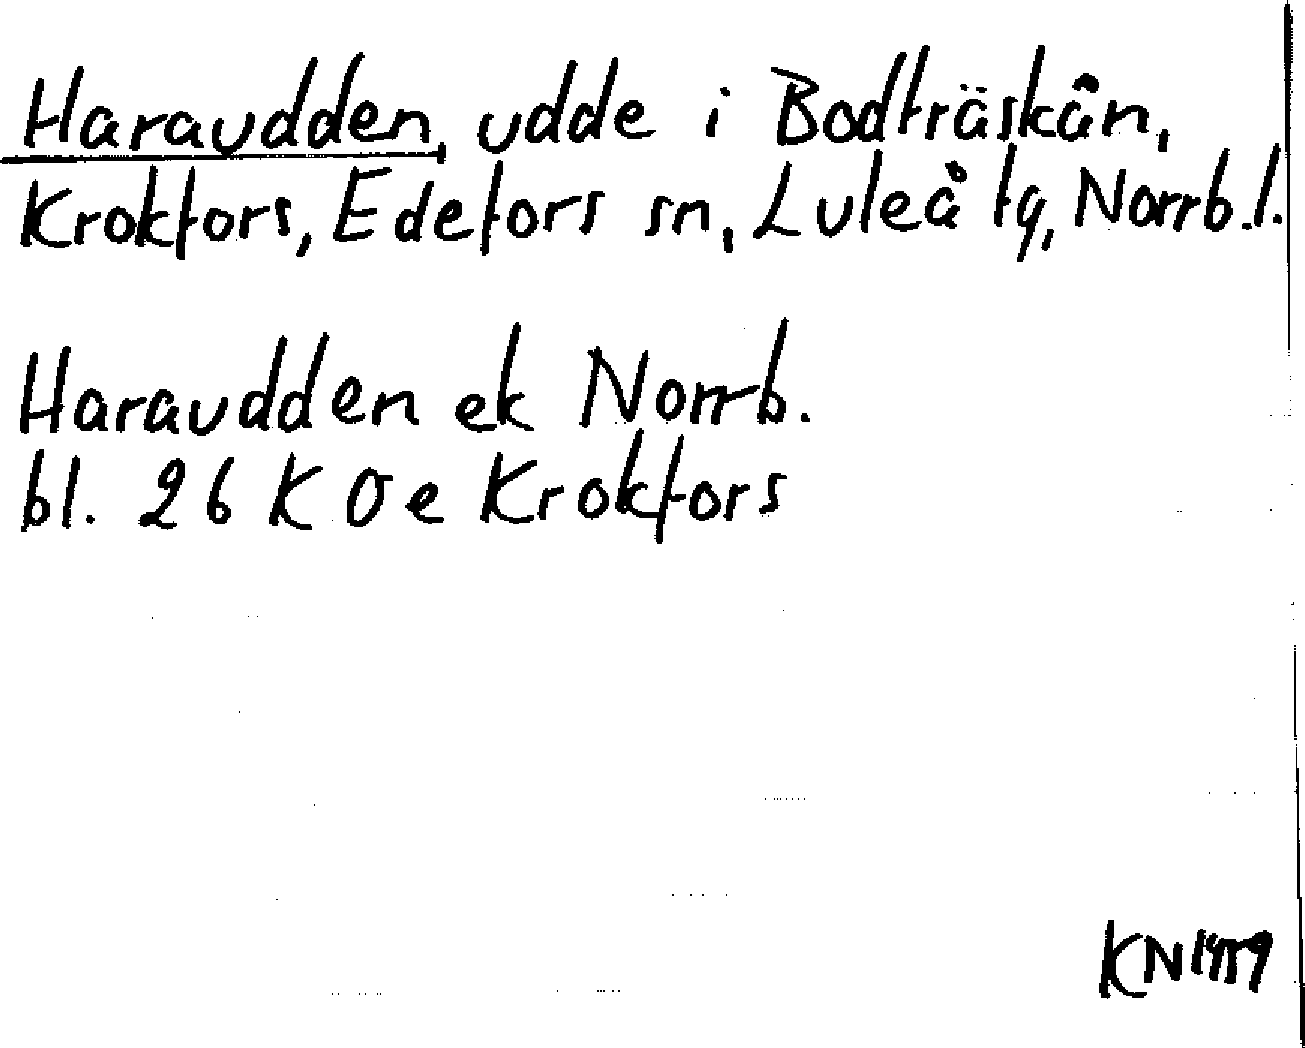 Haraudden, udde i Bodträskån,
Krokfors, Edefors sn, Luleå tg, Norrb.l.
Haraudden ek Norrb.
bl. 26 K 0e Krokfors
KN 1959